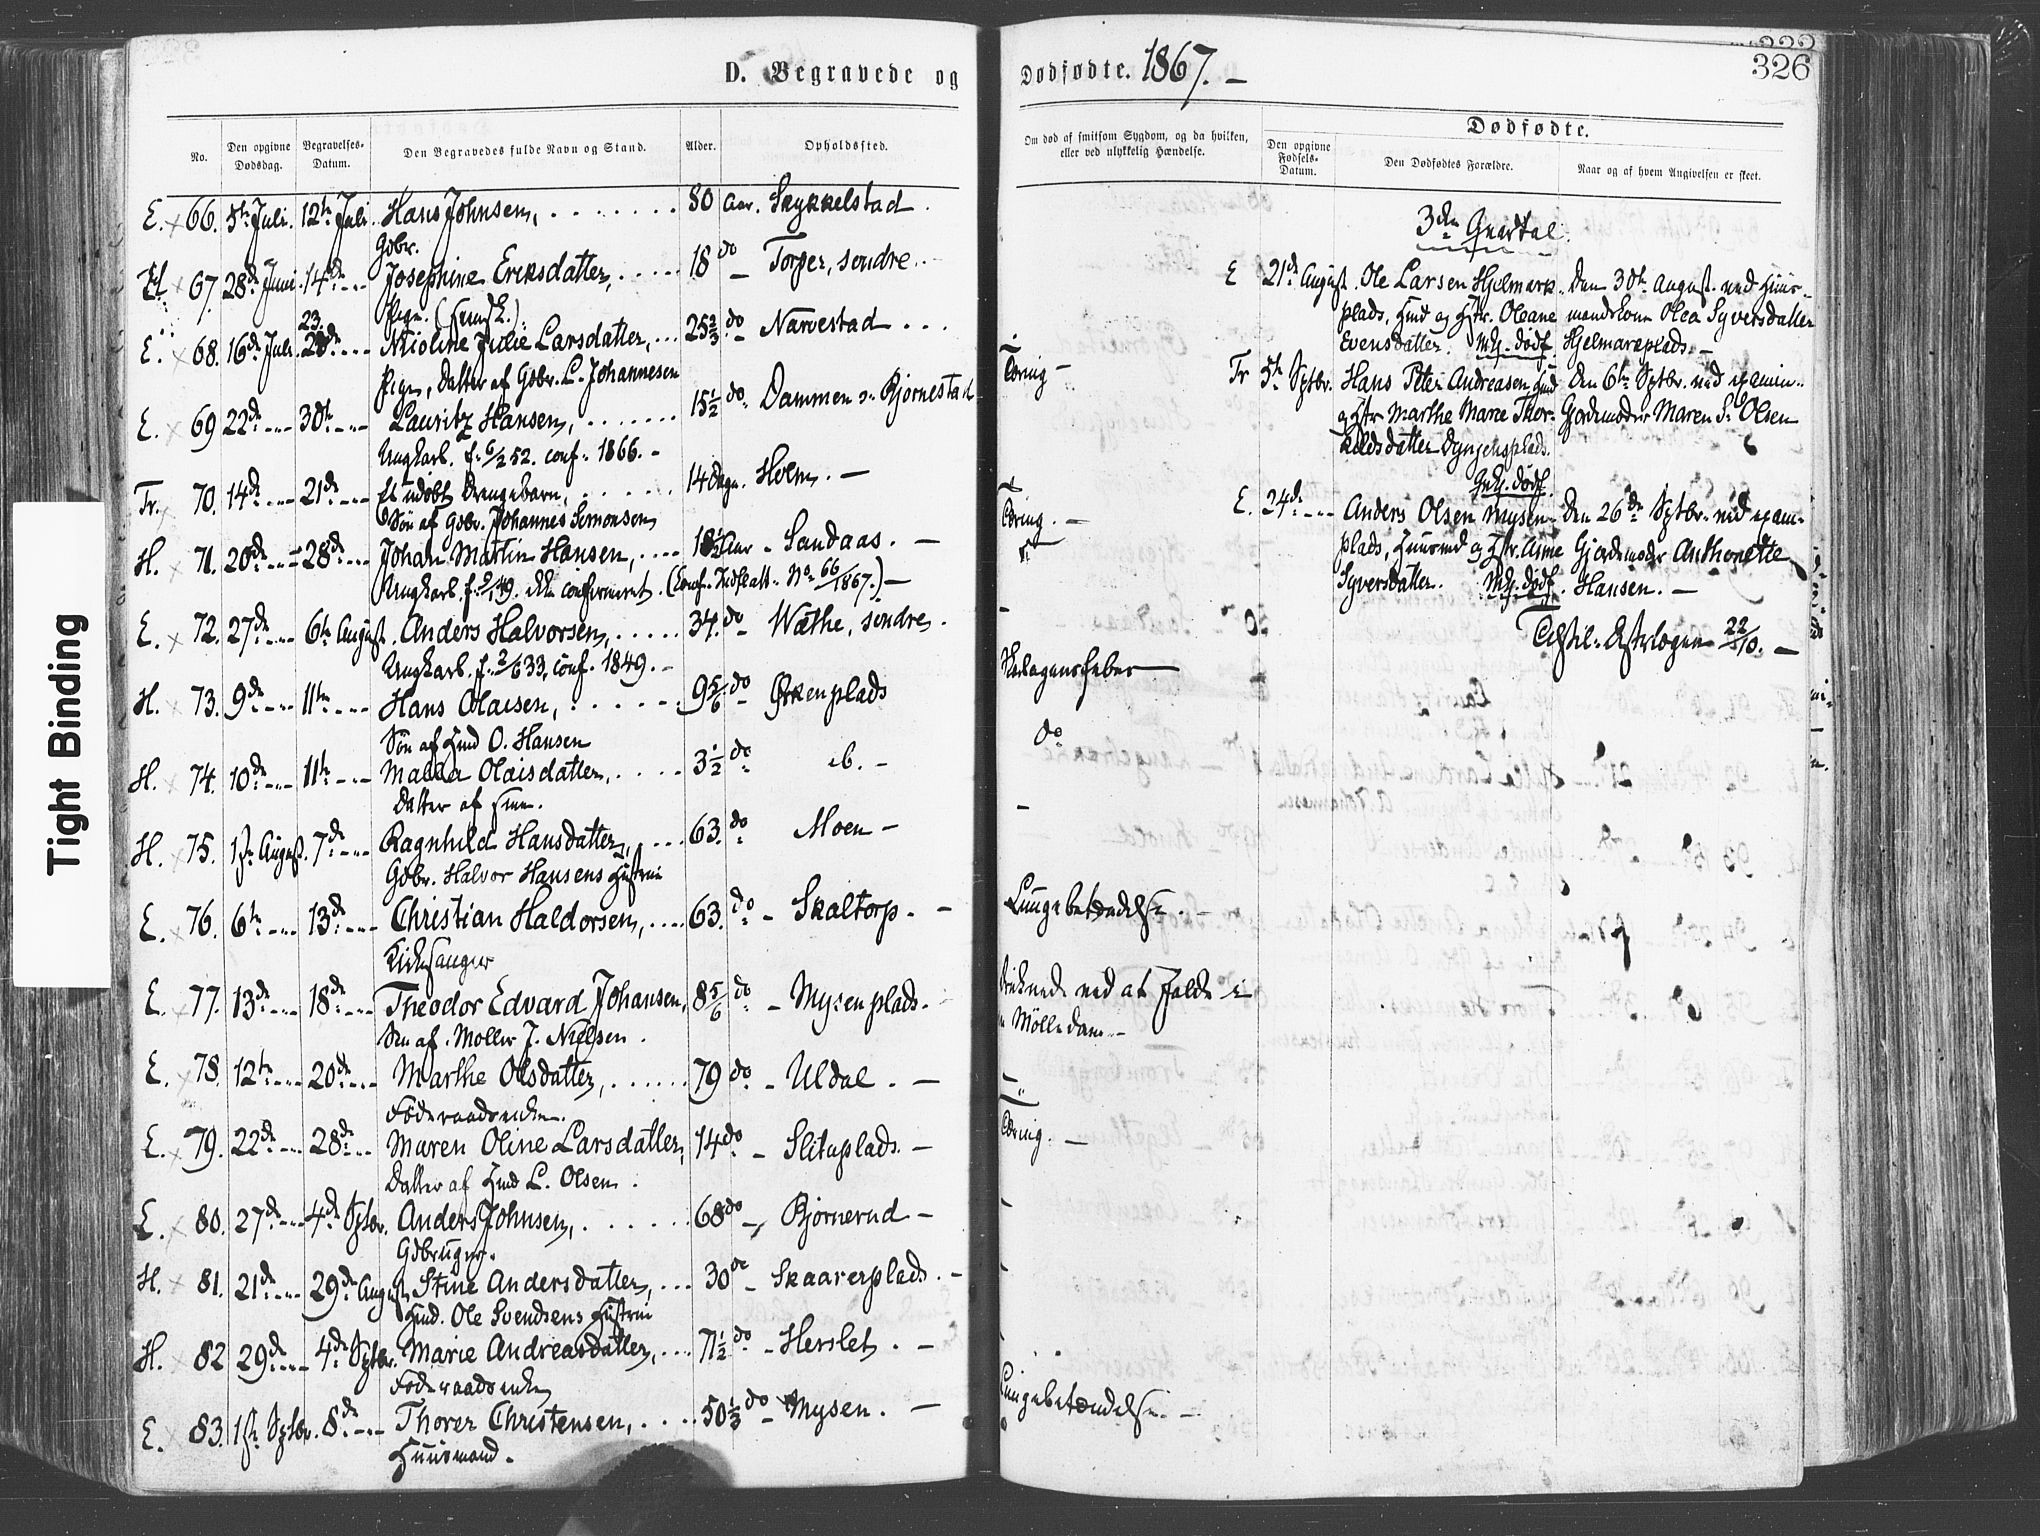 D. Begravede og
No.
Den opgivne Dødsdag.
Begravelses-Datum.
Den Begravedes fulde Navn og Stand.
Alder.
Opholdssted.
E. 66. 5te Juli. 12te Juli. Hans Johnsen, 80 Aar. Skykkelstad.
Gdbr.
67. 28de Juni. 14de Josephine Eriksdatter, 18 do Torper, søndre.
Pige.
23.
E. 68. 16de Juli. Nicoline Julie Larsdatter, 25 2/3 do Narvestad
Pige, Datter af Gdbr. L. Johannesen
E. 69 22de 30te Lauritz Hansen, 15 1/2 do. Dammen Bjørnestad
Ungkarl. f. 6/2 52. conf. 1866.
Fr. 70. 14de 21de Et udøbt Drengebarn, 14 Dage. Holm.
Søn af Gdbr. Johannes Simonsen
H. 71. 20de 28de Johan Martin Hansen, 18 1/2 Aar Sandaas.
Ungkarl. ikke confirmeret. No. 66/1867.)
E. 72. 27de 6te August. Anders Halvorsen, 34. do Wæthe, søndre.
Ungkarl. f. 2/6 33, conf. 1849.
H. 73. 9de 11te Hans Olaisen, 9 5/6 do Ørkenplads
Søn af Hmd O. Hansen
H. 74. 10de 11te Olaisdatter, 3 1/2 do ib.
Datter af
H. 75. 1ste August. 7de Ragnhild Hansdatter, 63. do Moen
Gdbr. Halvor Hansens Hustru
E. 76. 6te 13de Christian Haldorsen, 63. do Skaltorp.
Kirkesanger
E. 77. 13de 18de Theodor Edvard Johansen, 8 5/6 do Mysenplads.
Søn af Møller J. Nielsen.
E. 78. 12te 20de Marthe Olsdatter, 79 do Uldal.
Føderaadsenke.
E. 79. 22de 28de Maren Oline Larsdatter, 14 do Slituplads.
Datter af Hmd L. Olsen.
E. 80. 27de 4de Sptbr. Anders Johnsen, 68 do Bjørnerud
Gdbruger.
H. 81. 21de 29de August. Stine Andersdatter, 30 do Skaarerplads.
Hmd. Ole Svendsens Hustru
H. 82 29de 4de Sptbr. Marie Andreasdatter, 71 1/2 do Herslet.
Føderaadsenke
E. 83. 1ste Sptbr. 8de Thorer Christensen, 50 1/3 do Mysen.
Huusmand.
Dødfødte. 1867.
326
Om død af smitsom Sygdom, og da hvilken,
eller ved ulykkelig Hændelse.
Dødfødte.
Den opgivne Fødsels-Datum.
Den Dødfødtes Forældre.
Naar og af hvem Angivelsen er skeet.
3die Qvartal.
E 21de August. Ole Larsen Hjelmark- Den 30te August ved Huus-
plads, Hmd og Hstr. Oleane mandskone Olea Syversdatter
Evensdatter. Mk. dødf. Hjelmarkplads.
Tæring
Fr 5te Sptbr. Hans Peter Andreasen Hmd Den 6te Sptbr. ved examin.
og Hstr Marthe Marie Thor- Gjordemoder Maren S. Olsen
kildsdatter
Qvk. dødf.
Tæring.
E. 24de Anders Olsen Mysen- Den 26de Sptbr. ved exam-
plads, Huusmd og Hstr. Anne Gjordemoder Anthonette
Syversdatter. Mk. dødf. Hansen.
22/10.
Skarlagensfeber
do
Lungebetændelse.
druknede ved at falde i
en Mølledam
Tæring.
Lungebetændelse.
Tight Binding